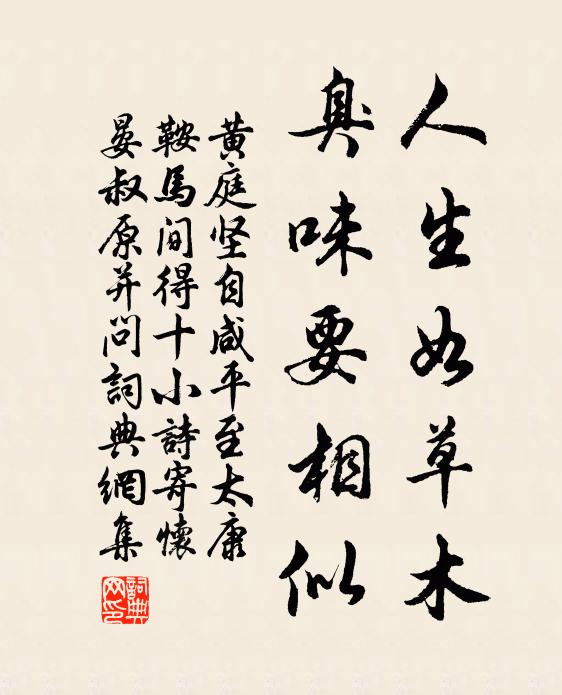 人生如草木
臭味要相似
黄庭坚自咸平至太康
鞍馬间得十小詩寄懷
晏叔原并问詞典網集
詞典网印